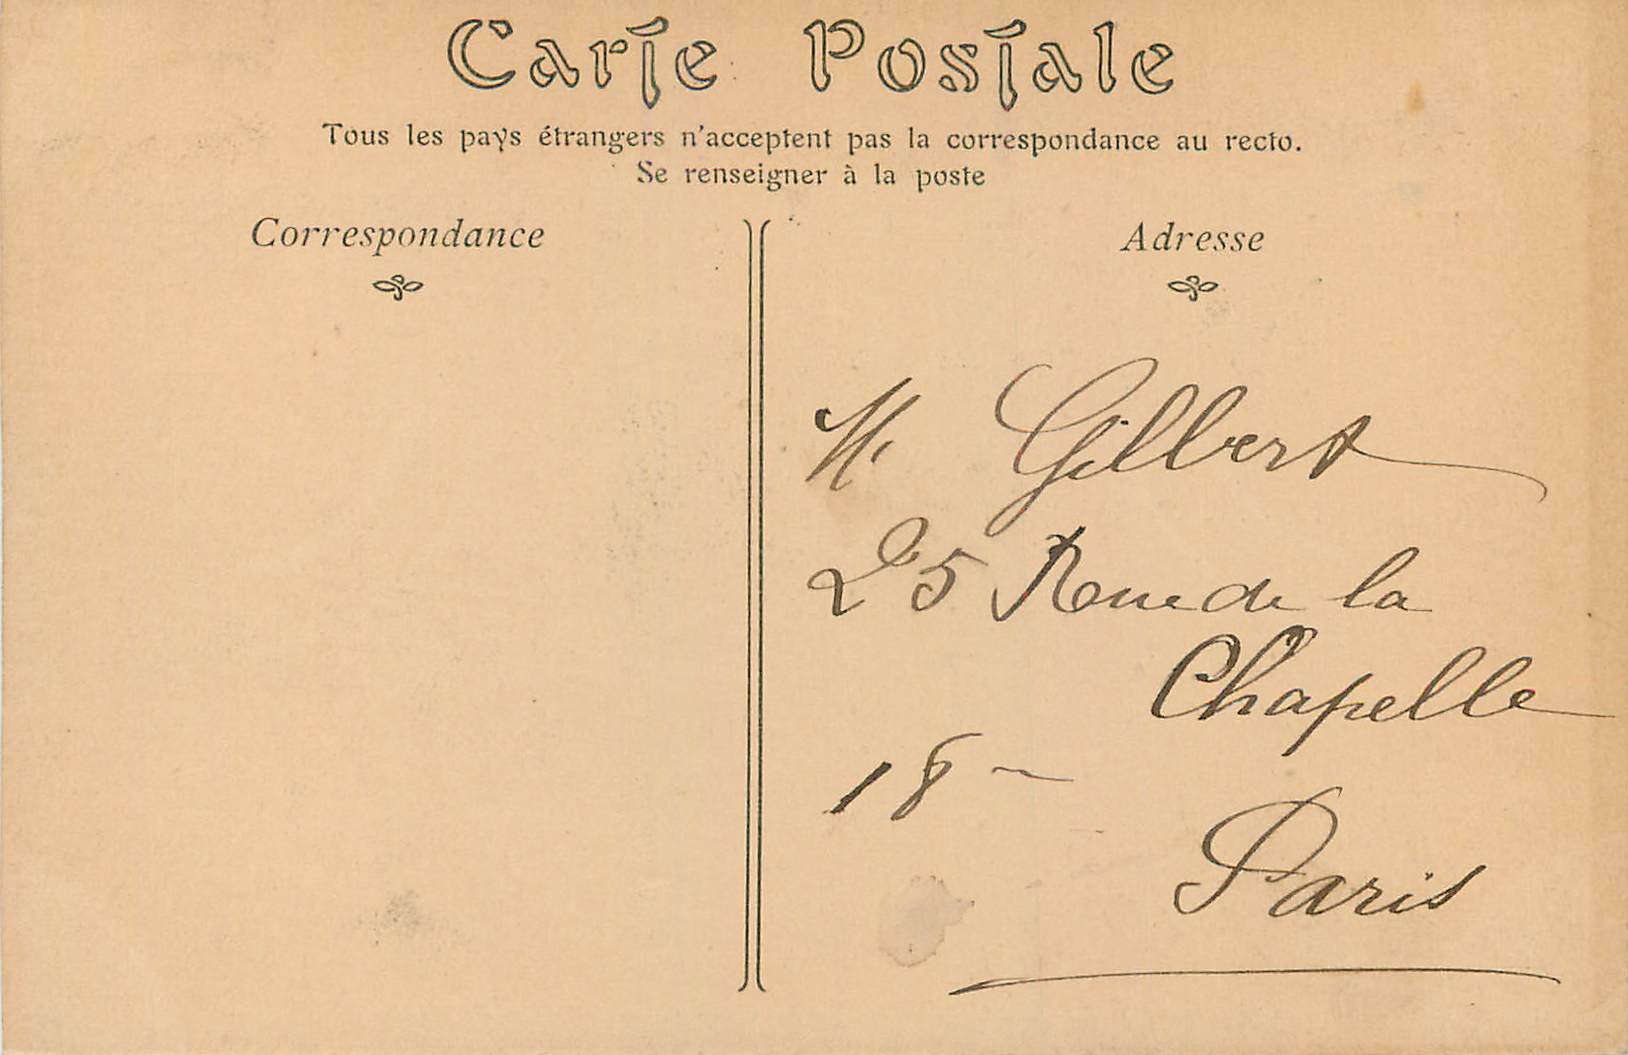 Carte Postale
Tous les pays étrangers n'acceptent pas la correspondance au recto.
Se renseigner à la poste
Correspondance
Adresse
M. Gilbert
25 Rue de la
Chapelle
18 –
Paris